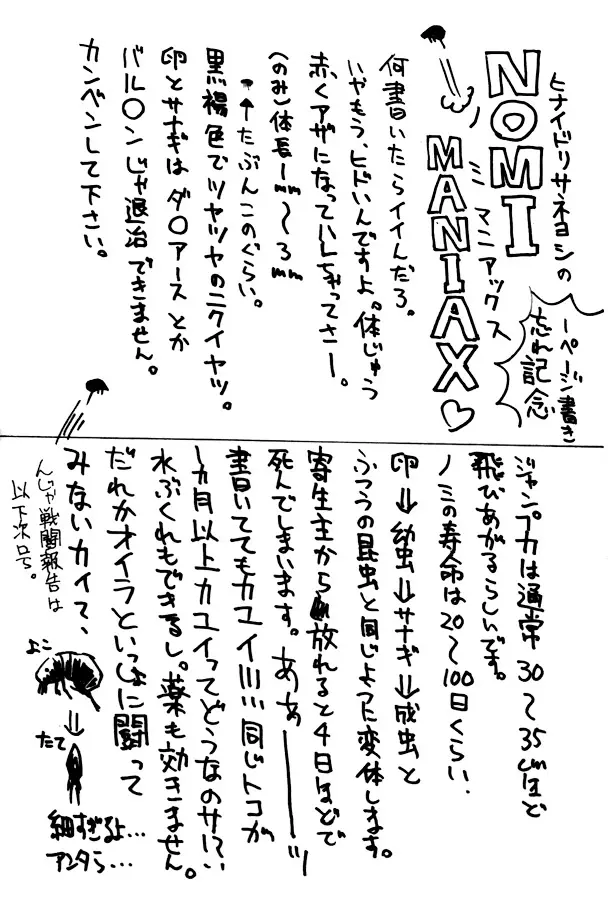 ヒナイドリサネヨシの
NOMI
ミ マニアックス
MANIAX♡
1ページ書き
忘れ記念
何書いたらイイんだろ。
いやもう、ヒドいんですよ。体じゅう
赤くアザになっていしちゃってさー。
(のみ)体長1mm〜3mm
・←たぶんこのぐらい。
黒褐色でツヤツヤのニクイヤツ。
卵とサナギはダ〇アースとか
バル〇ンじゃ退治できません。
カンベンして下さい。
ジャンプ力は通常30〜35cmほど
飛びあがるらしいです。
ノミの寿命は20〜100日くらい.
卵⇒幼虫⇒サナギ⇒成虫と
ふつうの昆虫と同じように変体します。
寄生主から放れると4日ほどで
死んでしまいます。あぁーーッ
書いててもカユイ!!!!同じトコが
1ヵ月以上カユイってどうなのサ!?
水ぶくれもできるし。薬も効きません。
だれかオイラといっしょに闘って
みないカイって、
んじゃ戦闘報告は
以下次号。
よこ
⇓
たて
細すぎるよ…
アンタら…